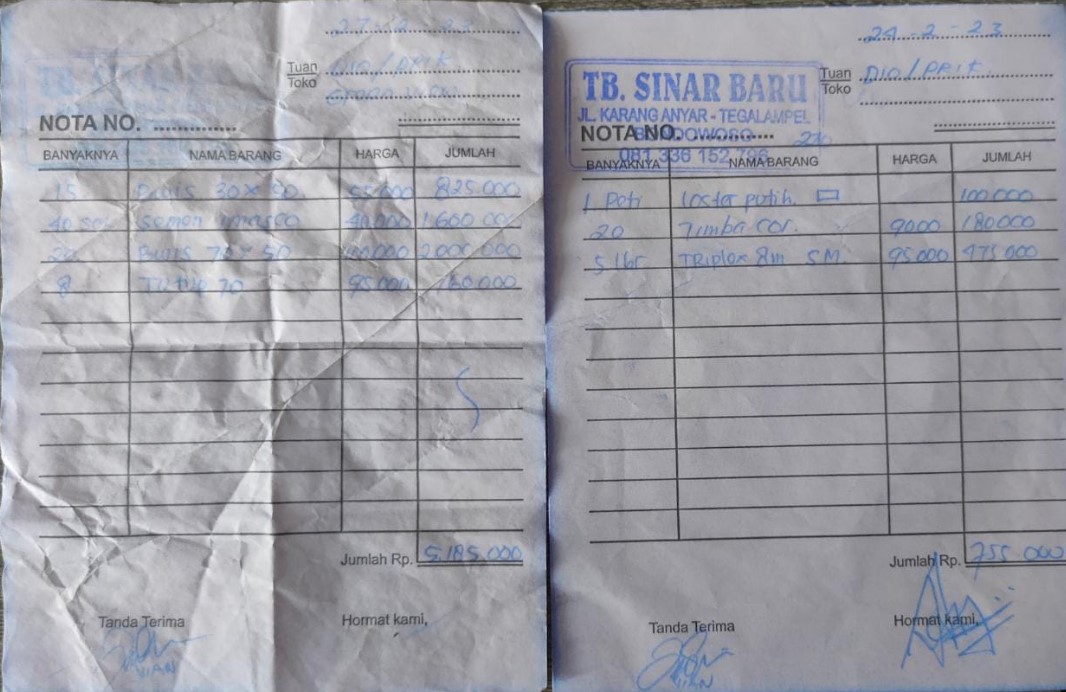 27-2-23
Tuan
Toko
DIO/PPIK
NOTA NO.
BANYAKNYA NAMA BARANG HARGA JUMLAH
15 Buis 30 x 50 55.000 825.000
40 semen 40.000 1.600.000
20 Buis 70 x 50 100.000 2.000.000
8 Tutup 70 95.000 760.000
Jumlah Rp. 5.185.000
Tanda Terima Hormat kami,
VIAN
24-2-23
TB. SINAR BARU
JL. KARANG ANYAR - TEGALAMPEL
BONDOWOSO
081 336 152 796
Tuan
Toko
DIO/PPIK.
NOTA NO.
BANYAKNYA NAMA BARANG HARGA JUMLAH
1 Loster putih 100.000
20 Timba cor. 9000 180000
5 lbr TRiplex 8m SM. 95.000 475000
Jumlah Rp. 755 000
Tanda Terima Hormat kami,
VIAN